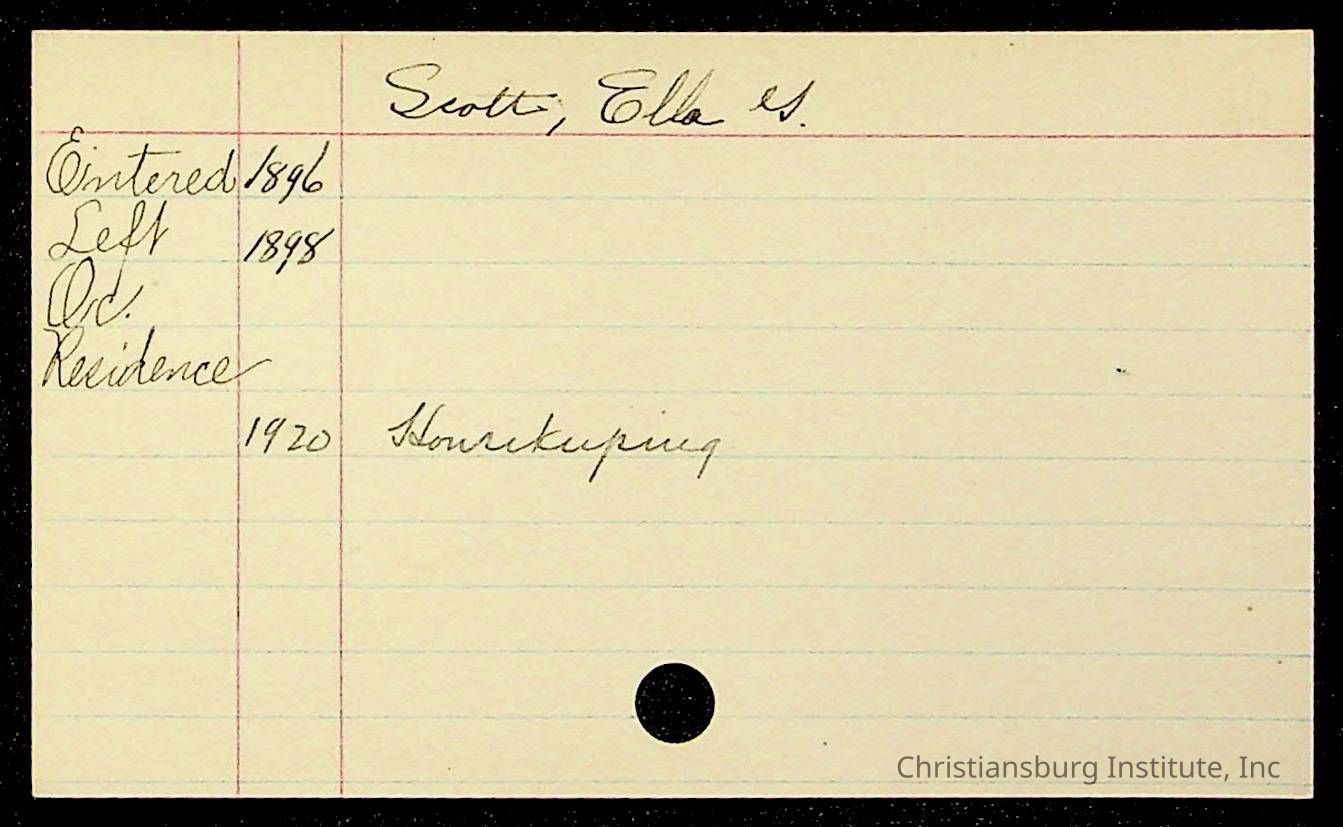 Scott, Ella G.
Entered 1896
Left 1898
Oc.
Residence
1920 Housekeeping
Christiansburg Institute, Inc